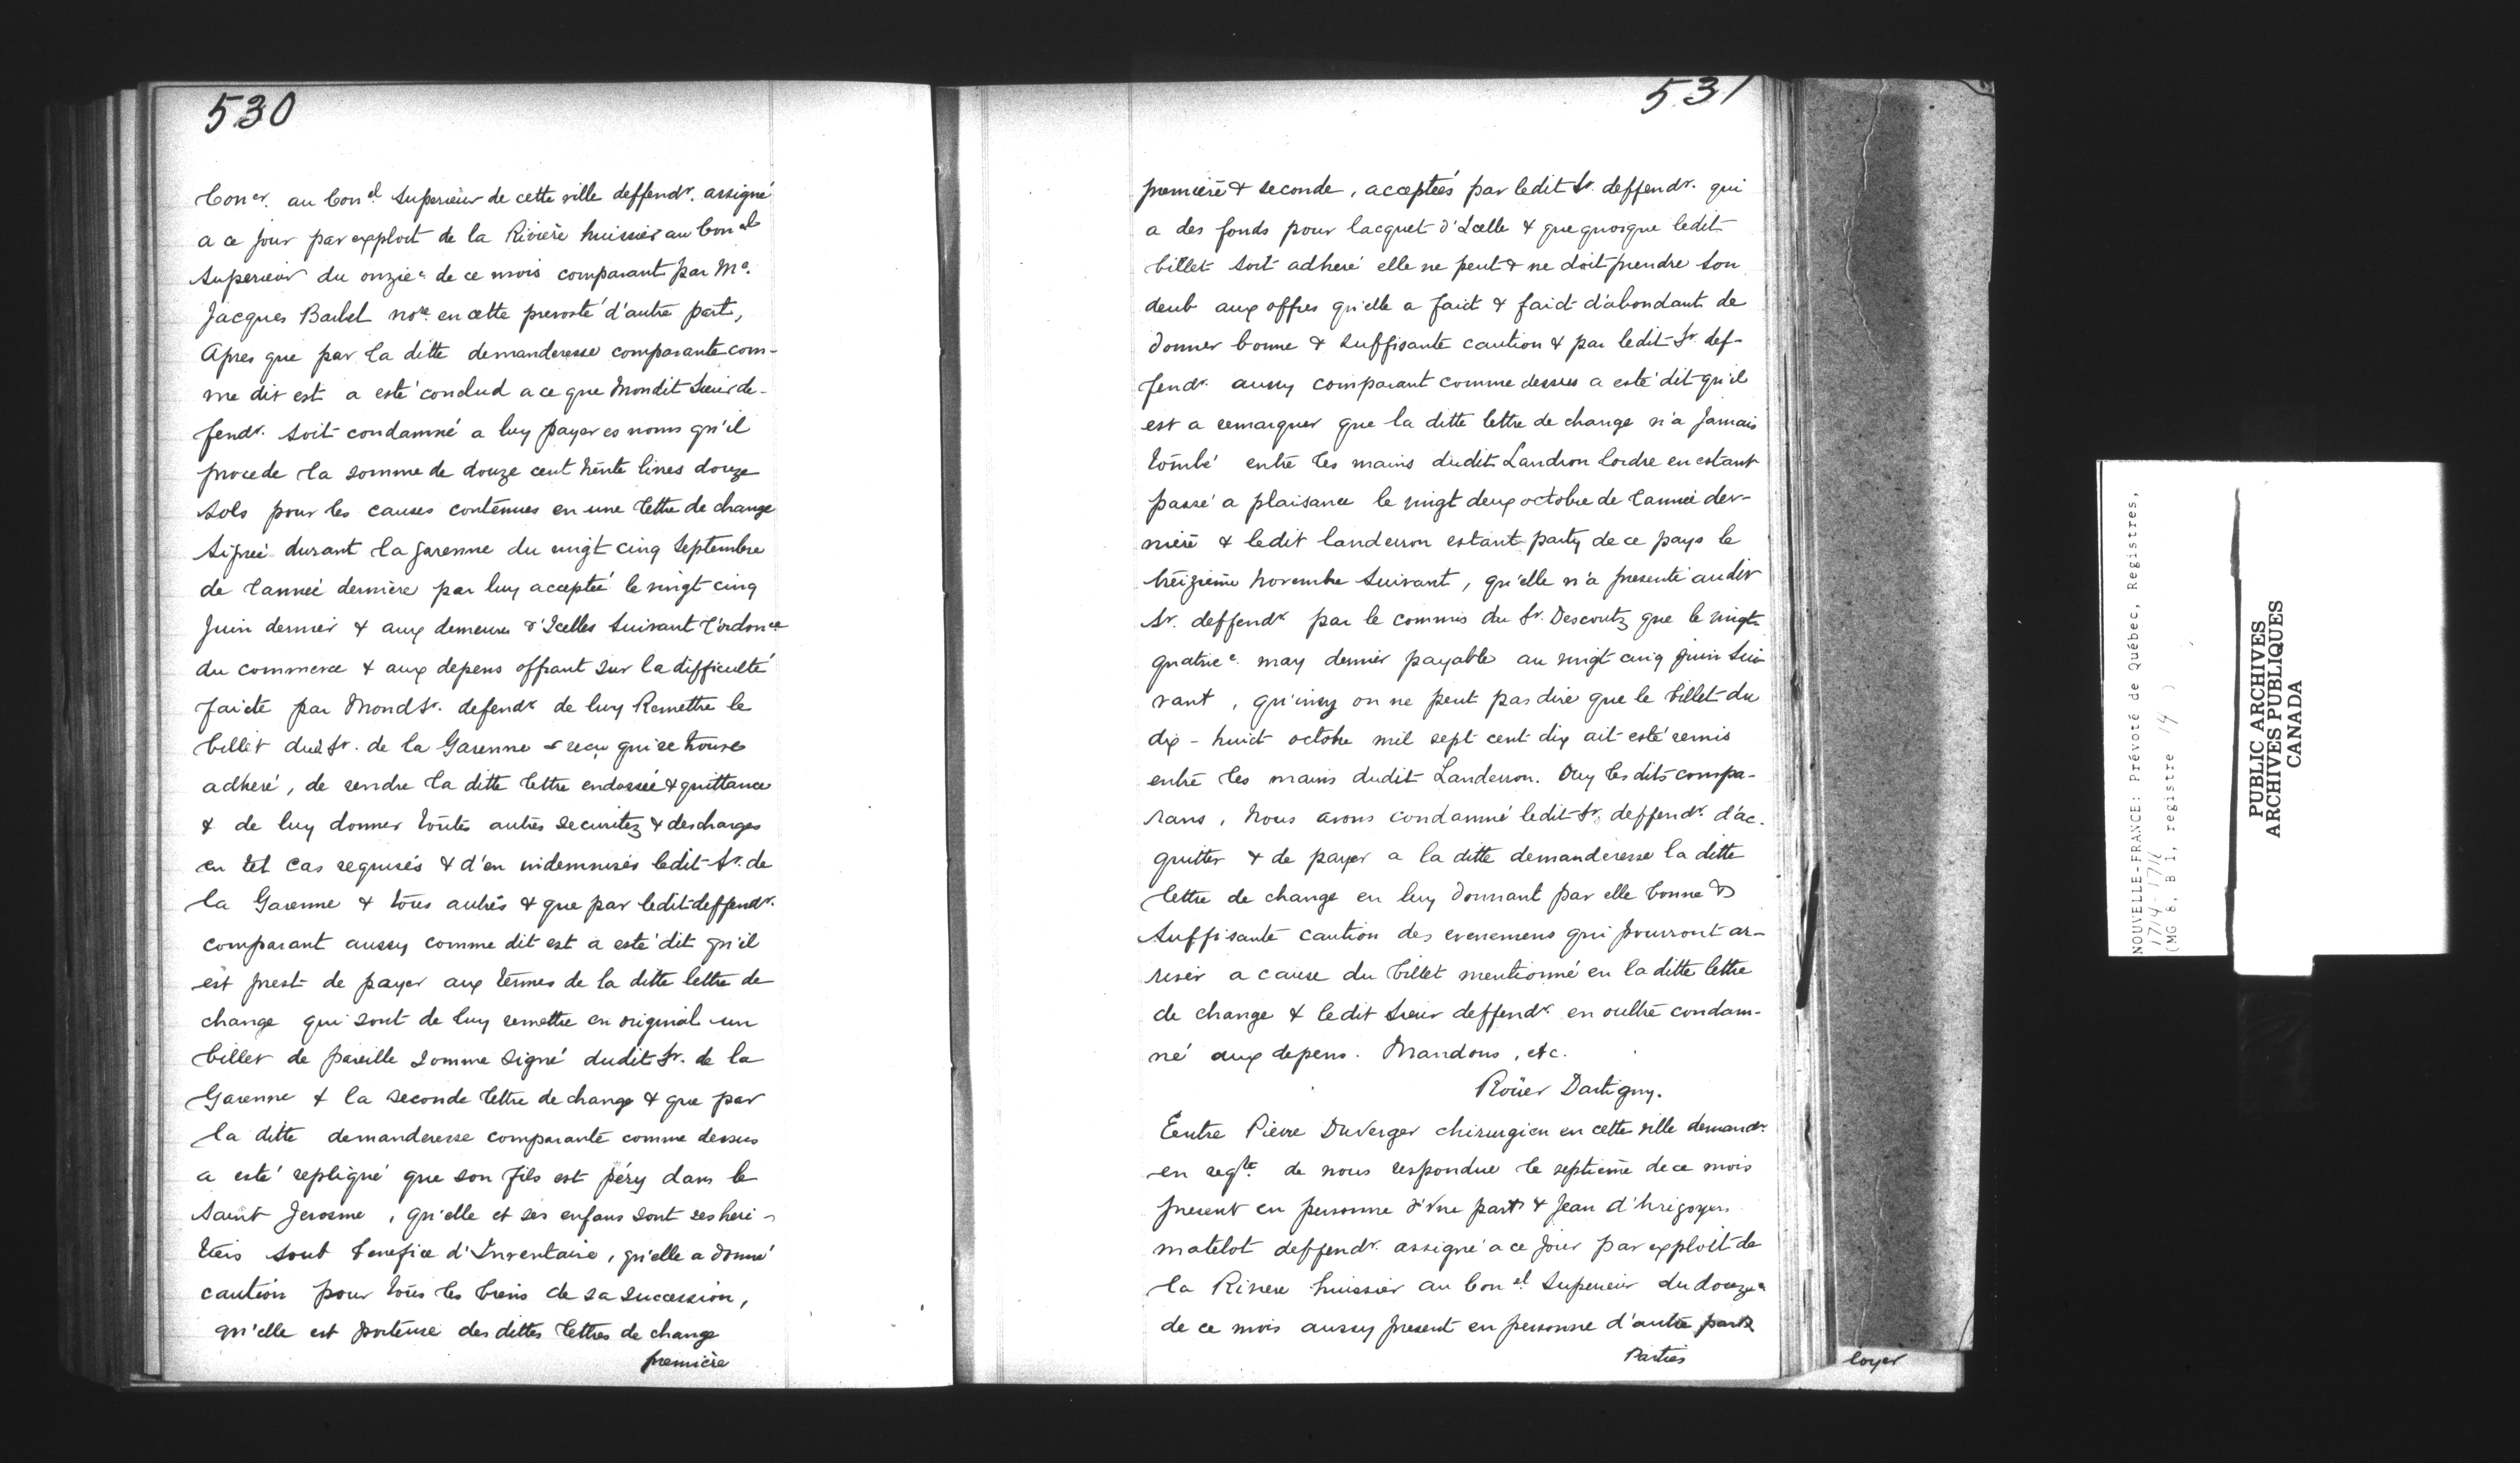 530
Coner. au Conel Superieur de cette ville deffendr. assigné
a ce jour par exploit de la Riviere huissier au Conel
Superieur du onzie. de ce mois comparant par Me.
Jacques Barbel nore. en cette prevosté d'autre part,
Apres que par la ditte demanderesse comparante com-
me dit est a esté conclud a ce que Mondit Sieur de-
fendr. soit condamné a luy payer es noms qu'il
procede la somme de douze cent trente livres douze
sols pour les causes contenues en une lettre de change
signée durant la garenne du vingt cinq Septembre
de l'année derniere par luy acceptée le vingt cinq
Juin dernier & aux demeures d'Icelles suivant l'ordonce
du commerce & aux depens offrant sur la difficulté
faicte par Mond Sr. defendr de luy Remettre le
billet dud Sr. de la Garenne & reçu qui se trouve
adheré, de rendre la ditte lettre endossée & quittance
& de luy donner toutes autres securitez & descharges
en tel cas requises & d'en indemniser ledit Sr. de
la Garenne & tous autres & que par ledit deffendr.
comparant aussy comme dit est a esté dit qu'il
est prest de payer aux termes de la ditte lettre de
change qui sont de luy remettre en original un
billet de pareille somme signé dudit Sr. de la
Garenne & la seconde lettre de change & que par
la ditte demanderesse comparante comme dessus
a esté repliqué que son fils est péry dans le
Saint Jerosme, qu'elle et ses enfans sont ses heri-
tiers sout benefice d'Inventaire, qu'elle a donné
caution pour tous les biens de sa succession,
qu'elle est porteuse des dittes lettres de change
premiere
531
premiere & seconde, acceptées par ledit Sr. deffendr. qui
a des fonds pour lacquet d'Icelle & que quoique ledit
billet soit adheré elle ne peut & ne doit prendre son
deub aux offres qu'elle a faict & faict d'abondant de
donner bonne & suffisante caution & par ledit Sr. def-
fendr. aussy comparant comme dessus a esté dit qu'il
est a remarquer que la ditte lettre de change n'a Jamais
tombé entre les mains dudit Landron lordre en estant
passé a plaisance le vingt deux octobre de l'année der-
niere & ledit landeron estant party de ce pays le
treizieme Novembre suivant, qu'elle n'a presenté audit
Sr. deffendr par le commis du Sr. Descoutz que le vingt
quatrie. may dernier payable au vingt cinq juin sui-
vant, qu'insy on ne peut pas dire que le billet du
dix-huict octobre mil sept cent dix ait esté remis
entre les mains dudit Landeron. Ouy les dits compa-
rans, Nous avons condamné ledit Sr. deffendr. d'ac-
quitter & de payer a la ditte demanderesse la ditte
lettre de change en luy donnant par elle bonne &
suffisante caution des evenemens qui pourront ar-
river a cause du billet mentionné en la ditte lettre
de change & ledit Sieur deffendr en oultre condam-
né aux depens. Mandons, etc.
Roüer Dartigny.
Eentre Pierre DuVerger chirurgien en cette ville demandr.
en reqte. de nous respondue le septieme de ce mois
present en personne d'Vne part & Jean d'hrigoyen
matelot deffendr. assigné a ce jour par exploit de
la Riviere huissier au Conel Superieur du douzie
de ce mois aussy present en personne d'autre part
Parties
loyer
NOUVELLE-FRANCE: Prévoté de Québec, Registres,
1714-1716
(MG 8, B 1, registre 14)
PUBLIC ARCHIVES
ARCHIVES PUBLIQUES
CANADA